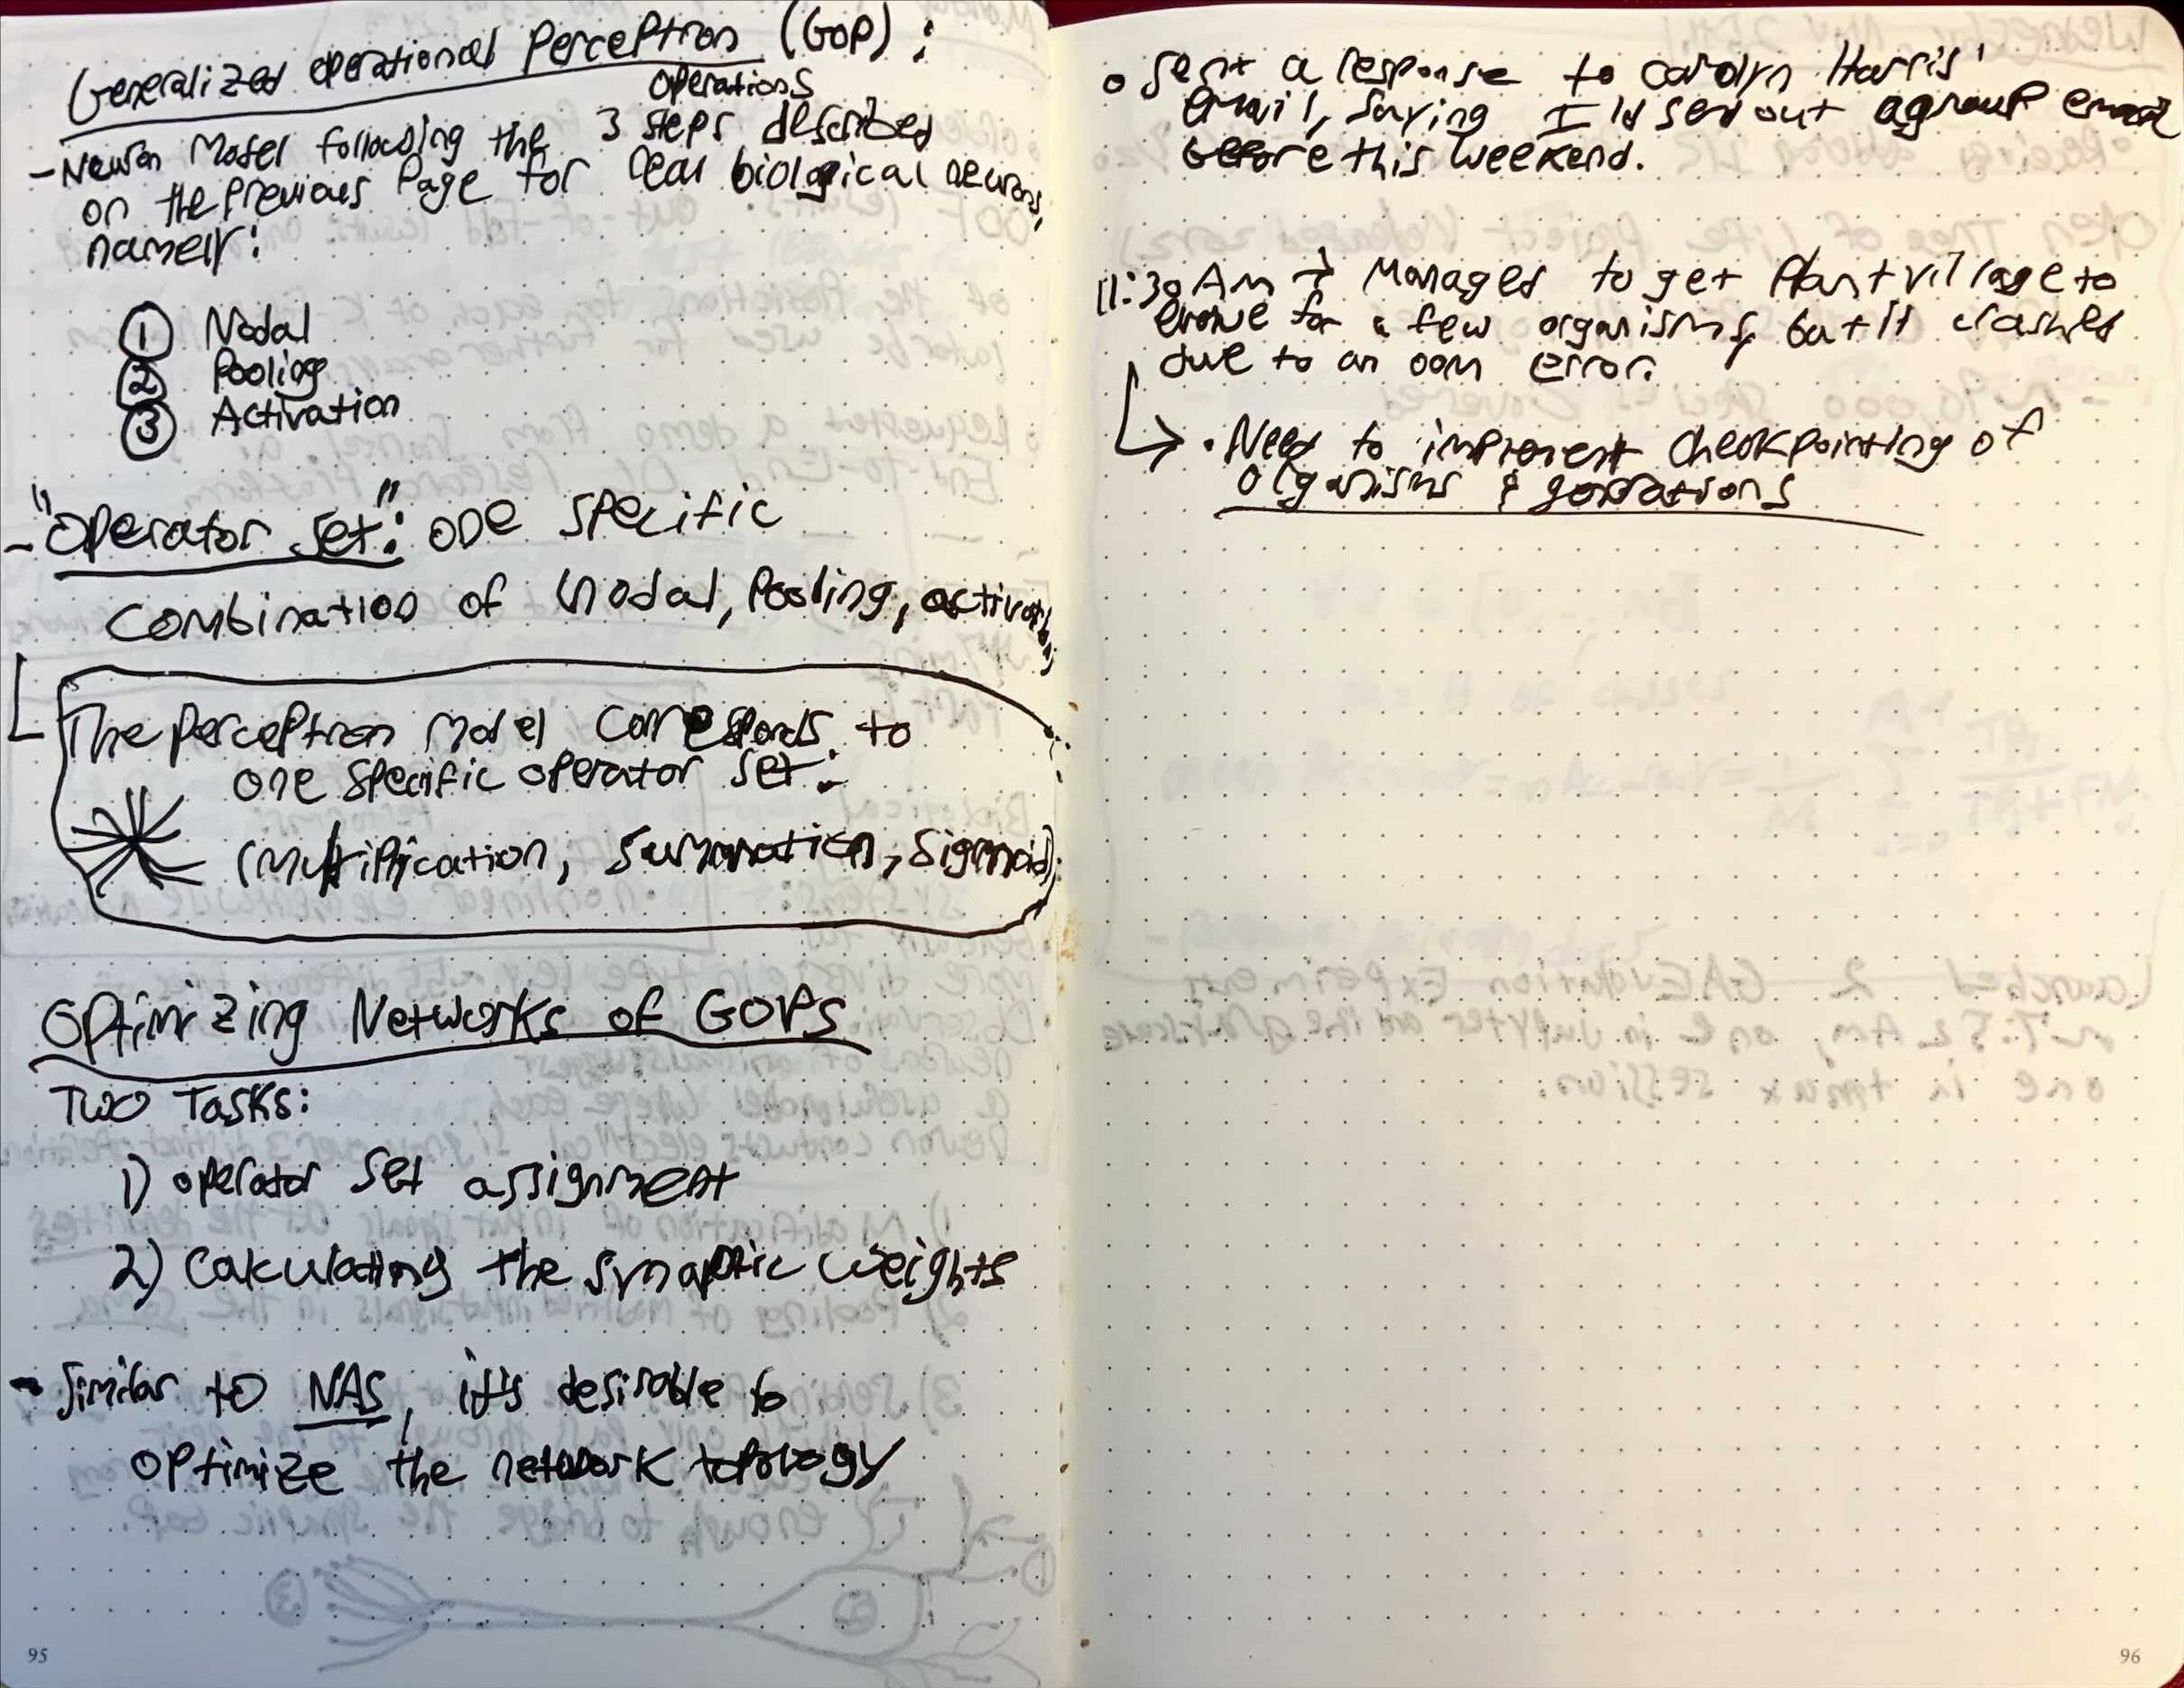 Generalized Operational Perceptron (GOP):
operations
- Neuron Model following the 3 steps described
on the Previous Page for real biological neurons,
namely:
① Nodal
② Pooling
③ Activation
- "Operator Set": one specific
Combination of (nodal, Pooling, activation)
The Perceptron Model Corresponds to
one specific operator set:
(Multiplication, Summation, Sigmoid)
Optimizing Networks of GOPs
Two Tasks:
1) operator set assignment
2) Calculating the synaptic weights
- Similar to NAS, it's desirable to
optimize the network topology
95
o Sent a response to Carolyn Harris'
email, saying I'd send out a group email
before this weekend.
11:30 AM → Managed to get Plantvillage to
evolve for a few organisms, but it crashed
due to an OOM error.
↳ • Need to implement checkpointing of
organisms & generations
96